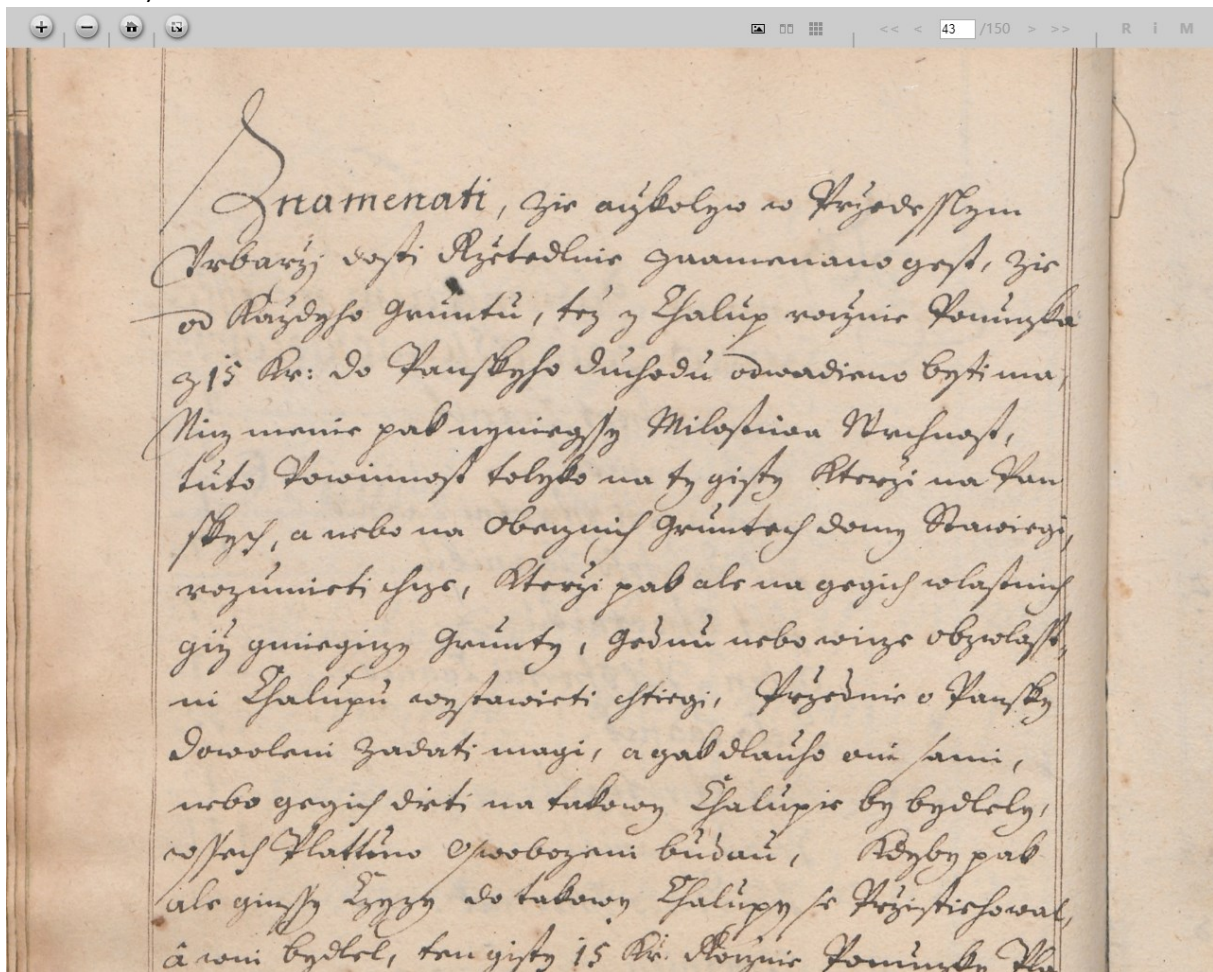 43 /150 << < > >> R i M
Znamenati, zie aczkolyw w Przedesslym
Vrbarzj dosti Rzetedlnie znamenano gest, zie
od Kazdyho Gruntu, tez z Chalup rocznie Ponuczka
z 15 Kr: do Panskyho duchodu odwadieno byti ma,
Nicz menie pak nyniegssy Milostiwa Wrchnost,
tuto Powinnost tolyko na ty gisty Kterzi na Pan
skych, a nebo na Obecznich Gruntech domy Stawiegj,
rozumieti chcze, Kterzi pak ale na gegich wlastnich
giz gmiegiczy Grunty, gednu nebo wicze obzwlasst,
ni Chalupu wystawieti chtiegi, Przednie o Pansky
dowoleni Zadati magi, a gak dlauho oni sami,
nebo gegich dieti na takowy Chalupie by bydlely,
wssech Plattuno Oswobozeni budau, Kdyby pak
ale ginssy Czyzy do takowy Chalupy se Przistiehowal,
a w ni bydlel, ten gisty 15 Kr. Rocznie Ponuczky Pla